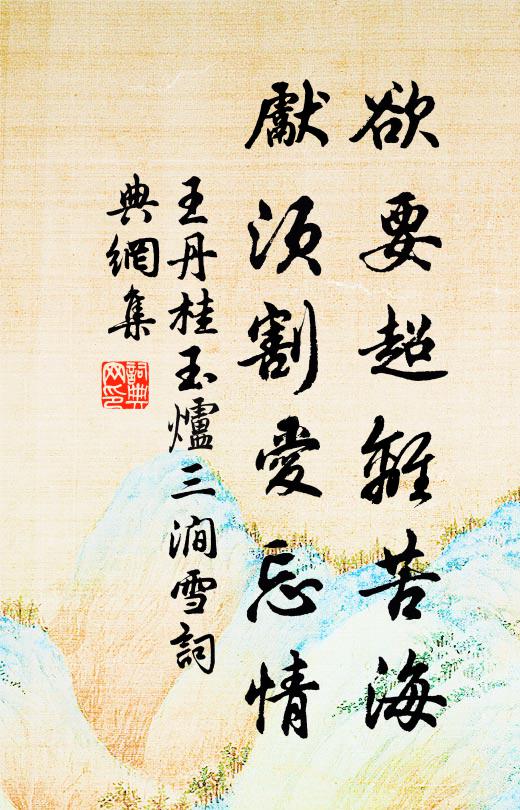 欲要超離苦海
獻須割愛忘情
王丹桂玉爐三澗雪詞
典網集
詞典網印